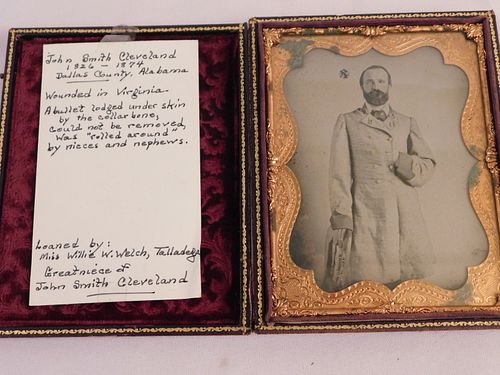 John Smith Cleveland
1826 - 1874
Dallas County, Alabama
Wounded in Virginia.
A bullet lodged under skin
by the collarbone,
could not be removed,
was "rolled around"
by nieces and nephews.
Loaned by:
Miss Willie W. Welch, Talladega
Greatniece of
John Smith Cleveland